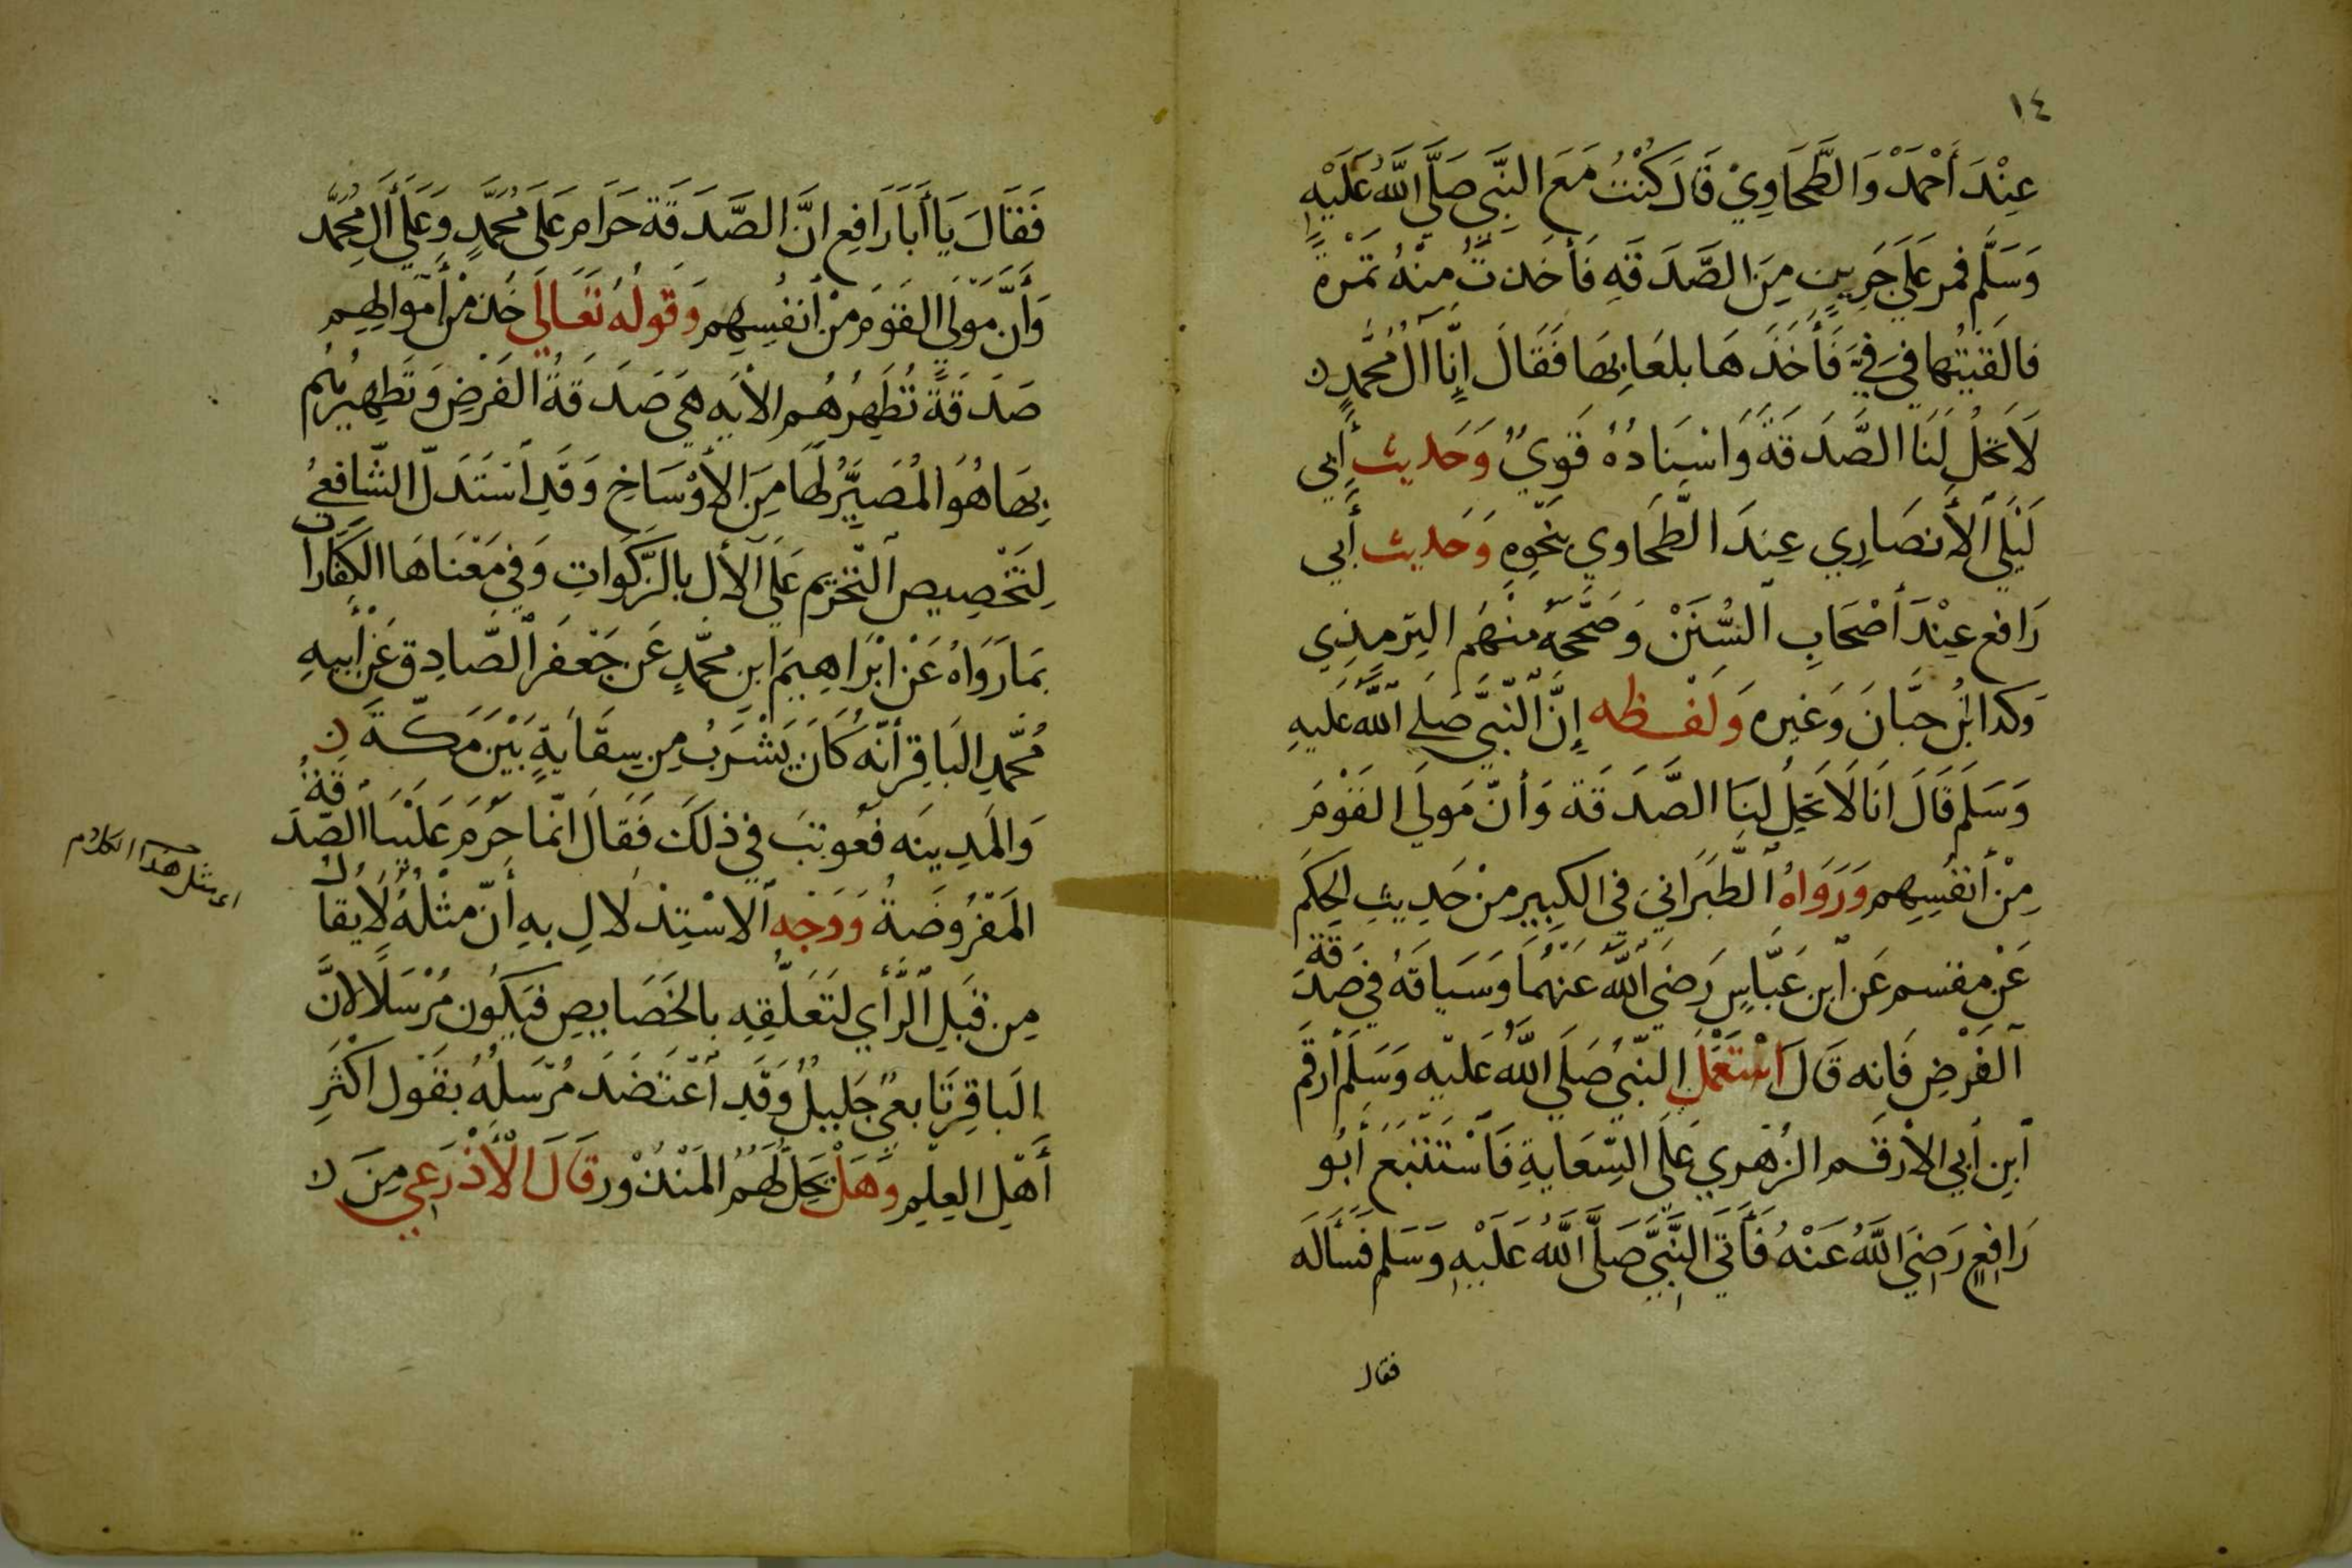 ١٤
عِنْدَ أَحْمَدْ وَالطَّحَاوِيْ قَالَ كُنْتُ مَعَ النَّبِي صَلَّى اللَّهُ عَلَيْهِ
وَسَلَّم فمر عَلَى جَرِينٍ مِنَ الصَّدَقَهِ فَأَخَذتُ مِنْهُ تَمْرةً
فالقَيْتُها في فيَّ فَأَخَذَهَا بلعَابِهَا فَقَالَ إِنَّا آلُ مُحَّمدٍ
لاَ تحَلُ لَنَا الصَّدَقَةَ وَاسِنَادُهُ قَوِيٌ وَحَديث أَبِي
لَيْلَي الأَنصَارِي عِندَ الطَّحَاوِي بِنَحْوِهِ وَحَديث أَبي
رَافع عِنْدَ أَصْحَابِ السُّنَنْ وَصَحَّحَهُ مِنْهُم التِرمِذِي
وَكدا ابْنُ حبَّانَ وَغيره وَلَفْظه إِنَّ النَّبِيَّ صَلي اللَّه عَليهِ
وَسَلَم قَالَ انَا لَا تَحِلُ لنَا الصَّدَقَة وَأنّ مَولَى القَوْمَ
مِنْ أَنفُسِهِم وَرَوَاهُ الطَّبَرَاني في الكبِيرِ مِنْ حَدِيثِ الحِكَم
عَنْ مِقسم عَن ابنِ عَبَّاسٍ رَضيَ اللَّهُ عَنْهُمَا وَسَياقهُ في صَدَقَة
الفَرْضِ فَانه قَالَ اسْتَعْمَلَ النّبِيُ صَلَى اللَّهُ عَليْهِ وَسَلَم أرقَم
ابنِ أَبي الأرقَم الزُهرِي عَلَى السِّعَايةِ فَاسْتَتْبَعَ أَبُو
رَافِعٍ رَضِيَ اللَّهُ عَنْهُ فَأَتَى النَّبِيَّ صَلَّى اللَّهُ عَلَيْهِ وَسَلم فَسَألَه
فقال
فَقَالَ يَا أَبَا رَافِع انَّ الصَّدَقَة حَرَام عَلَى مُحَمَّدٍ وَعَلَى أَلِ مُحَمَّد
وَأَنَّ مَوْلَى القَوْمَ مِنْ أَنفُسِهِم وَقولُهُ تَعَالَي خُذ مْن أَموَالِهِم
صَدَقَةً تُطَهِرُهُم الأيَه هيَ صَدَقَةُ الفَرْضِ وَتَطهِيرُهُم
بِهَا هُوَ المُصَيِّرُ لَهَا مِنَ الأَوْسَاخِ وَقَدِ اسْتَدَلَّ الشَّافعيُ
لِتَخْصِيصِ التّحْرِيم عَلَى الآلِ بالزَّكَوَاتِ وَفي مَعْنَاهَا الكَفَّارا
بمَا رَوَاهُ عَنْ ابْرَاهِيمَ ابنِ محمَّدٍ عَن جَعْفَر الصَّادِق عَنْ أَبِيهِ
مُحَّمدِ البَاقِر أَنَّهُ كَانَ يَشْرَبُ مِن سِقَايةٍ بَيْنَ مَكّةَ
وَالمَدِينَه فعُوتِبَ في ذلَكَ فَقَالَ انّمَا حَرُمَ عَلَيْنَا الصَّدَقَةُ
المَفْرُوضَةُ وَوَجْهِ الاسْتِدْلَالِ بهِ أَنّ مثْلَهُ لَا يقَالُ
مِن قبَلِ الرَّأْي لتَعَلّقِهِ بالخَصَايِصِ فيَكُون مُرْسَلاً لانَّ
البَاقِر تَابعيٌ جَليلٌ وَقَد اعْتَضَدَ مُرْسَلهُ بقَوْل اكْثَرِ
أَهْلِ العِلْمِ وَهَلْ يَحِلّ لَهُمُ المَنْذُوْر قَالَ الأَذْرَعِي مِنَ
اي مثل هذا الكلام